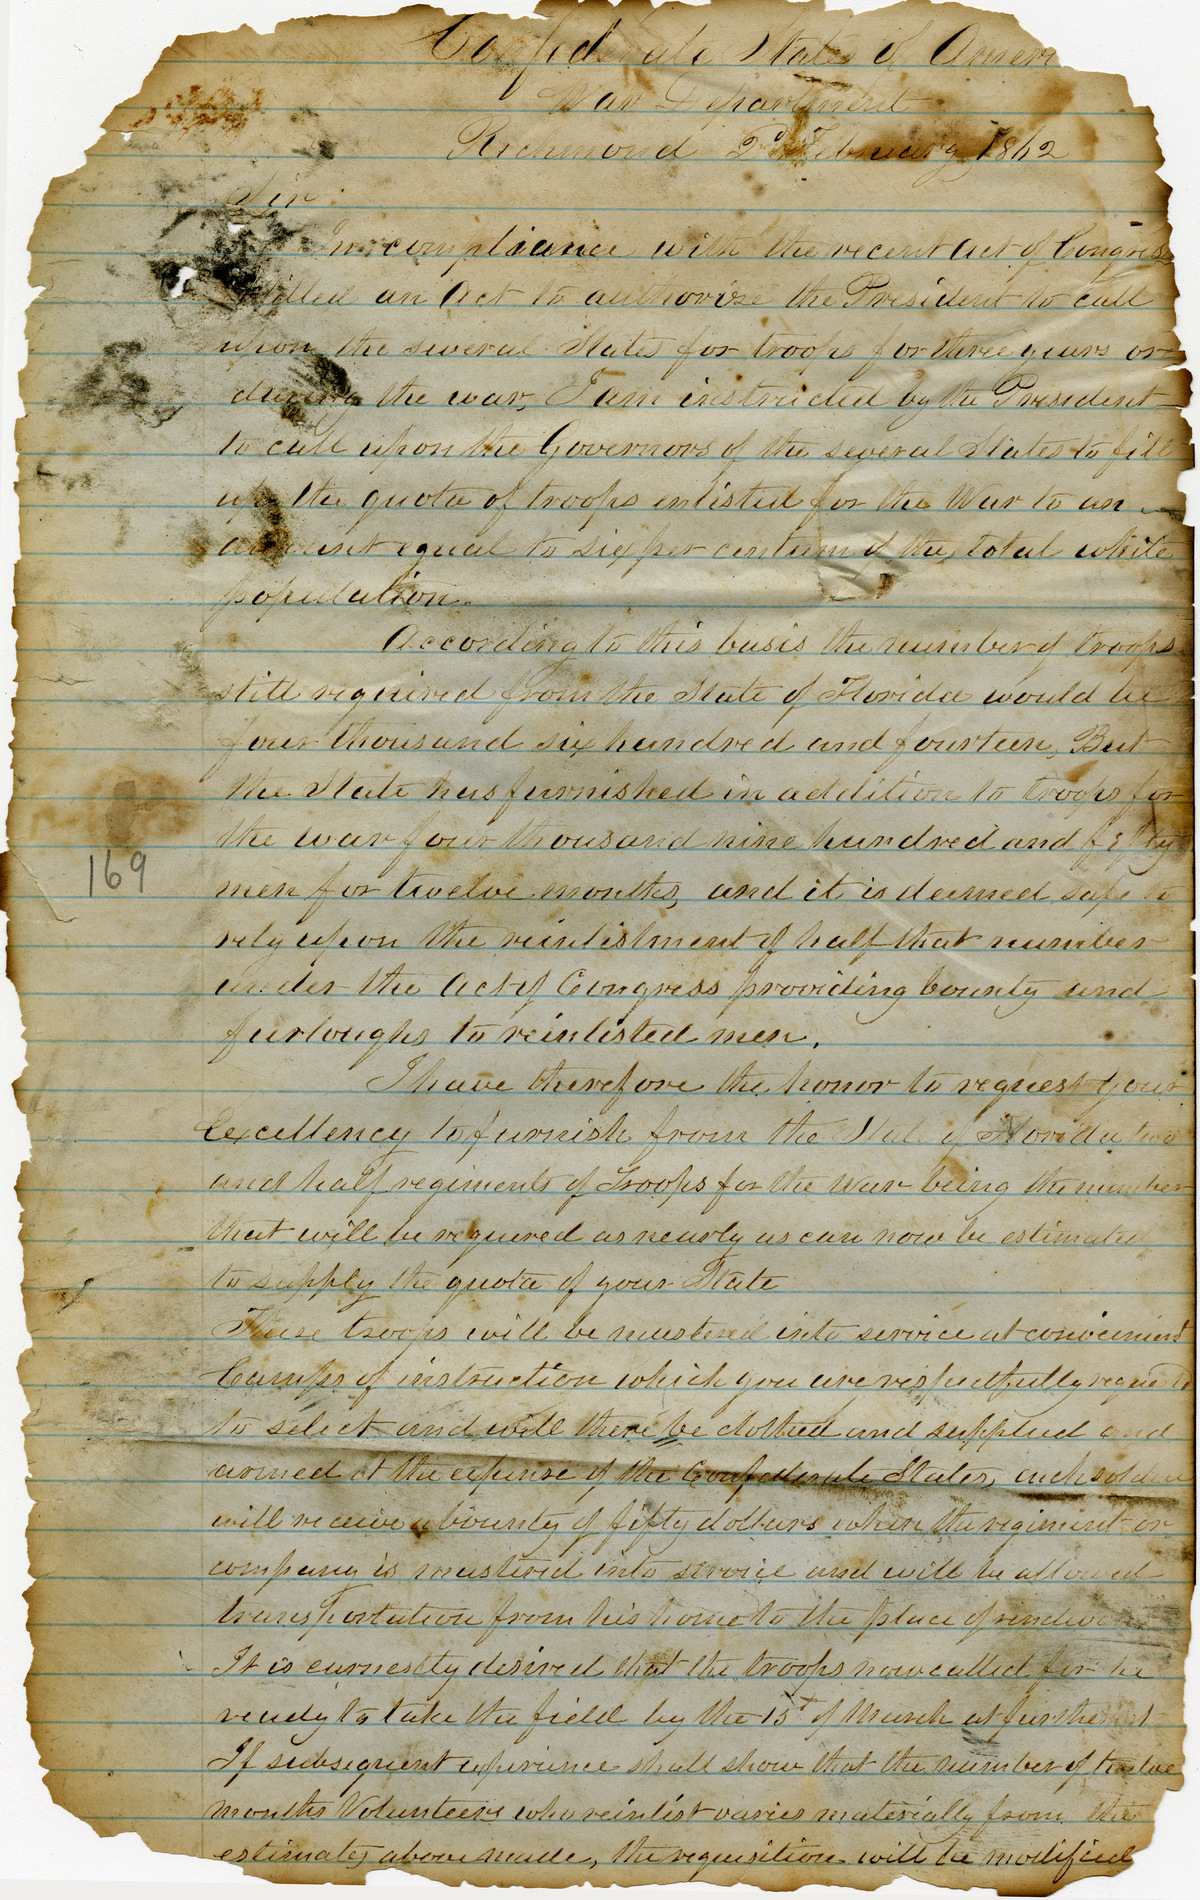 Confederate States of Ameri
War Department
Richmond 2d February 1862
Sir
In compliance with the recent Act of Congress
entitled an Act to authorize the President to call
upon the several States for troops for three years or
during the war, I am instructed by the President
to call upon the Governors of the several States to fill
up the quota of troops enlisted for the War to an
amount equal to six per centum of the total white
population.
According to this basis the number of troops
still required from the State of Florida would be
four thousand six hundred and fourteen, But
the State has furnished in addition to troops for
the war four thousand nine hundred and fifty
169
men for twelve months, and it is deemed safe to
rely upon the reinlistment of half that number
under the Act of Congress providing bounty and
furloughs to reinlisted men.
I have therefore the honor to request your
Excellency to furnish from the State of Florida two
and half regiments of Troops for the war being the number
that will be required as nearly as can now be estimated
to supply the quota of your State
These troops will be mustered into service at convenient
Camps of instruction which you are respectfully requested
to select and will there be clothed and supplied and
armed at the expense of the Confederate States, each soldier
will receive a bounty of fifty dollars when the regiment or
company is mustered into service and will be allowed
transportation from his home to the place of rendev
It is earnestly desired that the troops now called for be
ready to take the field by the 15t of March at furthest
If subsequent experience shall show that the number of twelve
months Volunteers who reinlist varies materially from the
estimates above made, the requisition will be modified